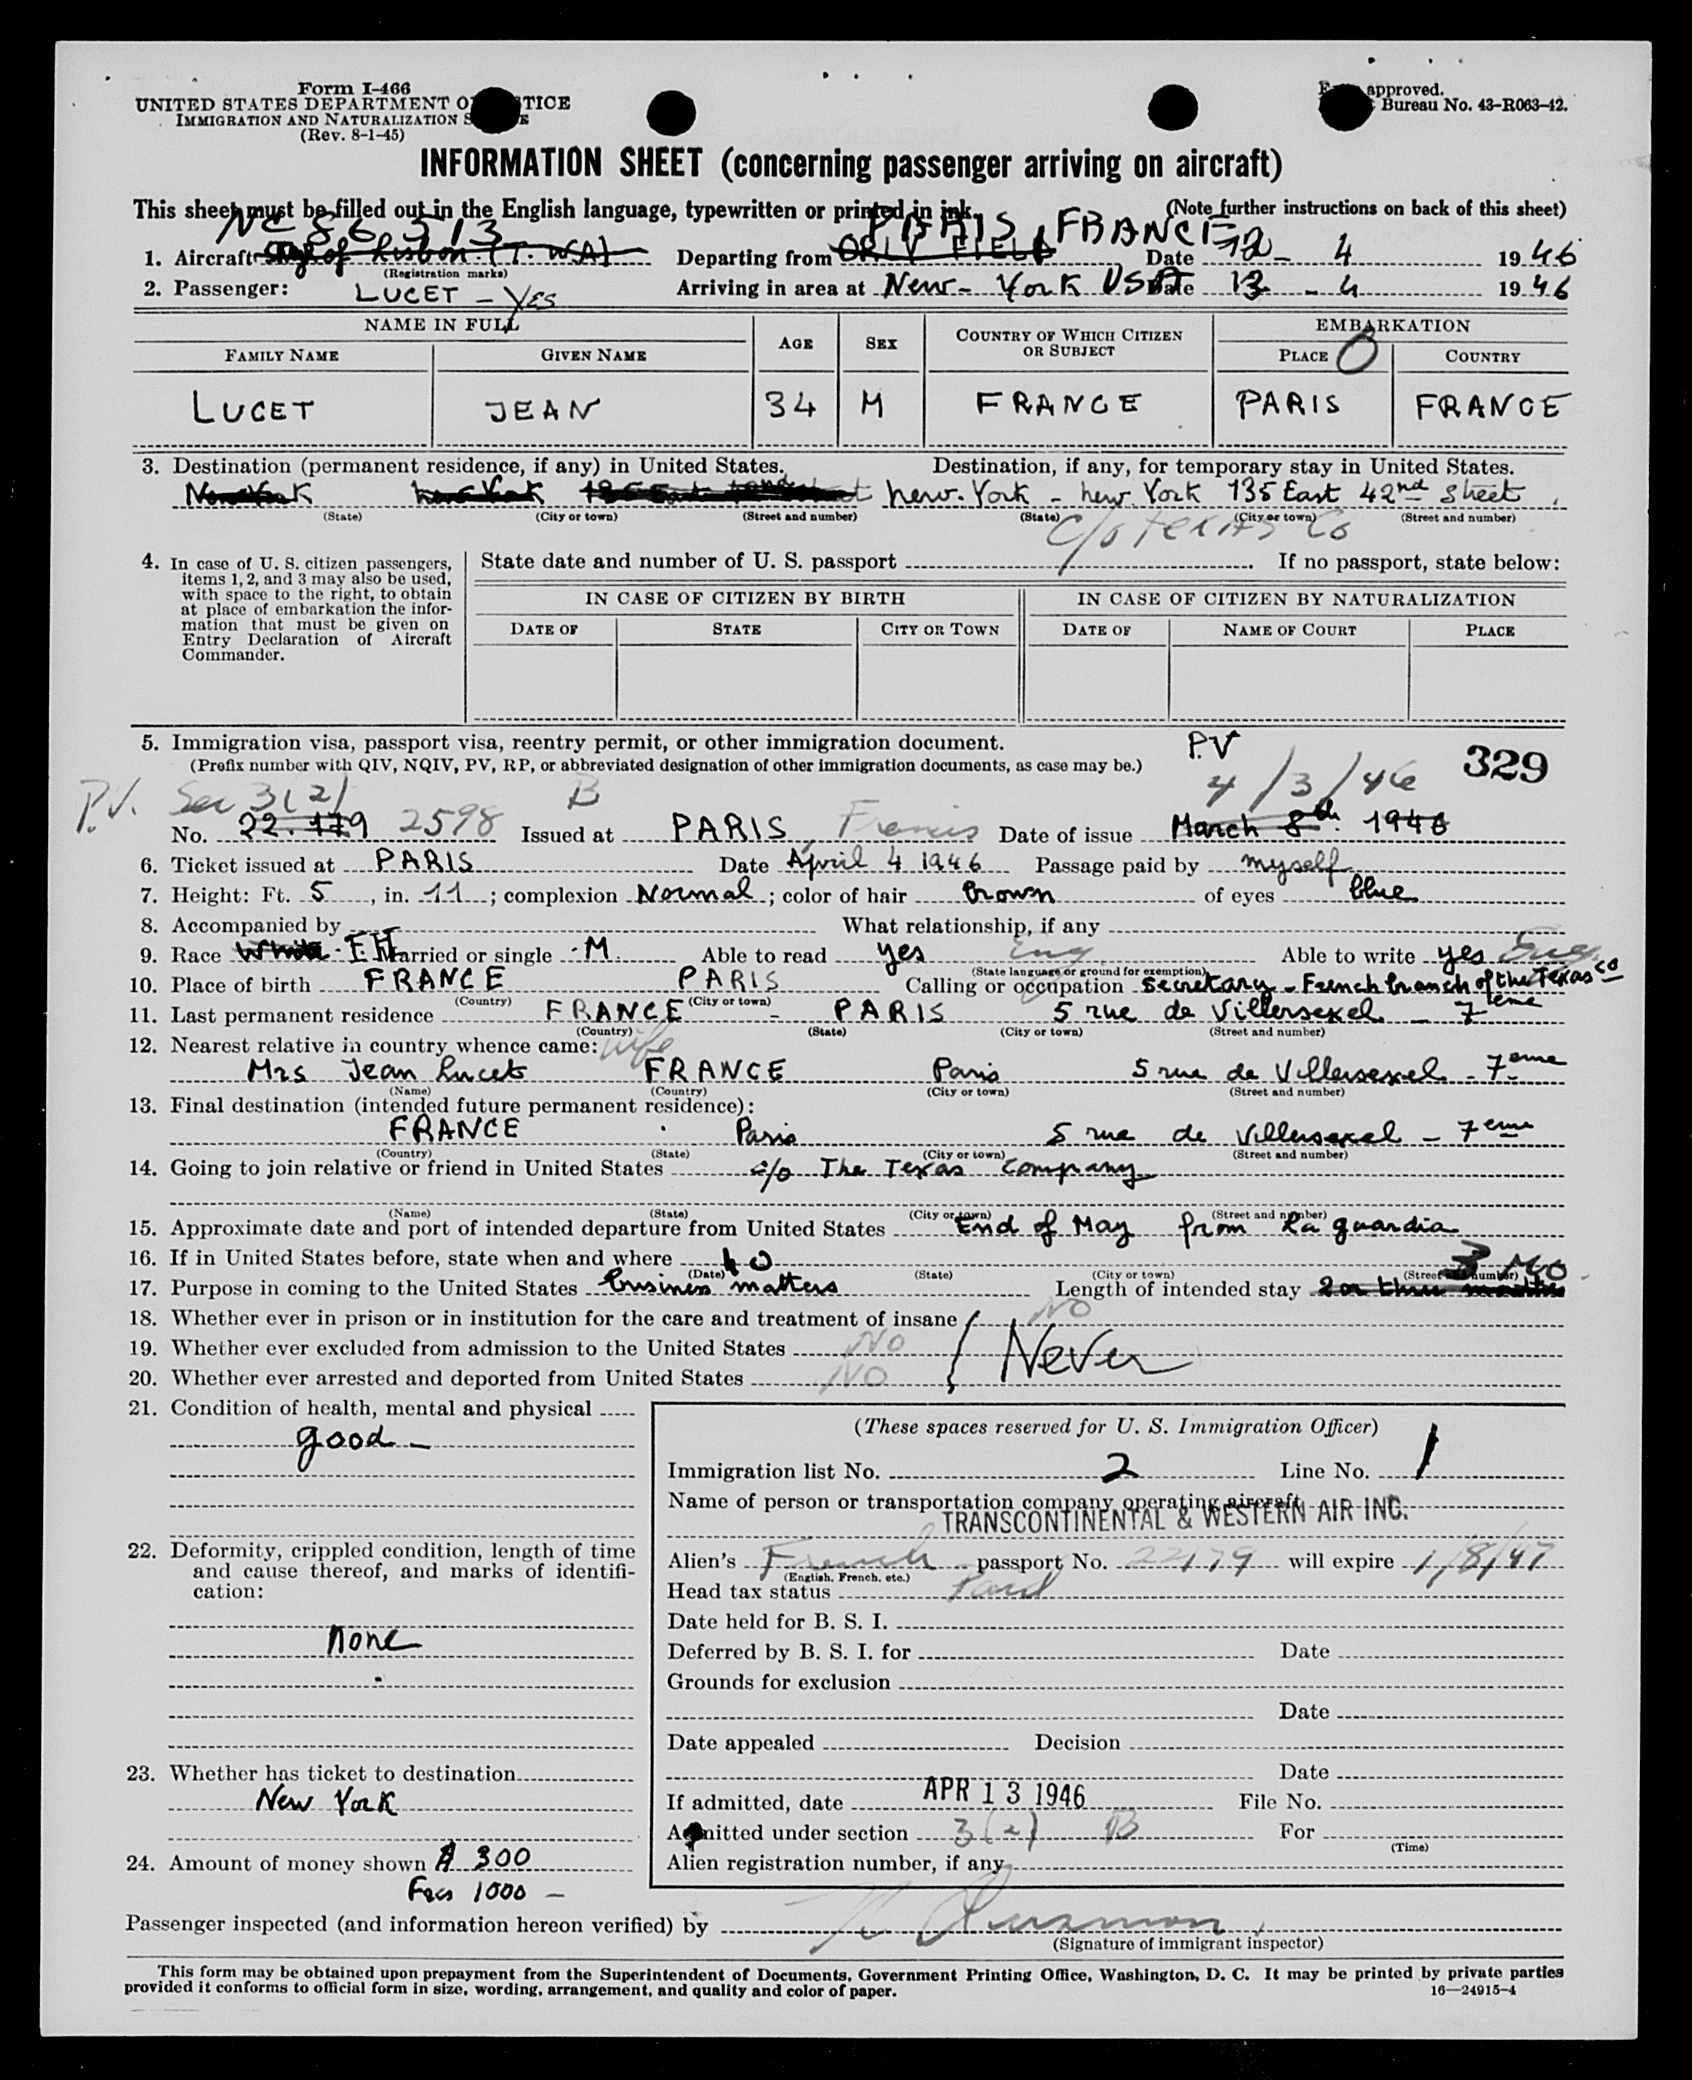 Form I-466
UNITED STATES DEPARTMENT OF JUSTICE
IMMIGRATION AND NATURALIZATION SERVICE
(Rev. 8-1-45)
Form approved.
Bureau No. 43-R063-42.
INFORMATION SHEET (concerning passenger arriving on aircraft)
This sheet must be filled out in the English language, typewritten or printed in ink.
(Note further instructions on back of this sheet)
NC 86513 PARIS, FRANCE
1. Aircraft Star of Lisbon (T.W.A) Departing from ORLY FIELD Date 12 - 4 1946
(Registration marks)
2. Passenger: LUCET - Yes Arriving in area at New-York USA Date 13 - 4 1946
NAME IN FULL AGE SEX COUNTRY OF WHICH CITIZEN OR SUBJECT EMBARKATION
FAMILY NAME GIVEN NAME PLACE COUNTRY
LUCET JEAN 34 M FRANCE PARIS FRANCE
3. Destination (permanent residence, if any) in United States. Destination, if any, for temporary stay in United States.
New York New York 135 East 42nd Street New-York - New York 135 East 42nd Street
(State) (City or town) (Street and number) (State) (City or town) (Street and number)
c/o Texas Co
4. In case of U. S. citizen passengers, items 1, 2, and 3 may also be used, with space to the right, to obtain at place of embarkation the information that must be given on Entry Declaration of Aircraft Commander.
State date and number of U. S. passport If no passport, state below:
IN CASE OF CITIZEN BY BIRTH IN CASE OF CITIZEN BY NATURALIZATION
DATE OF STATE CITY OR TOWN DATE OF NAME OF COURT PLACE
5. Immigration visa, passport visa, reentry permit, or other immigration document. P.V 329
(Prefix number with QIV, NQIV, PV, RP, or abbreviated designation of other immigration documents, as case may be.)
P.V. Sec 3(2) B 4/3/46
No. 22.179 2598 Issued at PARIS, France Date of issue March 8th. 1946
6. Ticket issued at PARIS Date April 4 1946 Passage paid by myself
7. Height: Ft. 5, in. 11; complexion Normal; color of hair brown of eyes blue
8. Accompanied by What relationship, if any
9. Race White FH Married or single M Able to read yes Eng Able to write yes Eng
(State language or ground for exemption)
10. Place of birth FRANCE PARIS Calling or occupation Secretary - French branch of the Texas Co
(Country) (City or town)
11. Last permanent residence FRANCE - PARIS 5 rue de Villersexel - 7ème
(Country) (State) (City or town) (Street and number)
12. Nearest relative in country whence came: wife
Mrs Jean Lucet FRANCE Paris 5 rue de Villersexel - 7eme
(Name) (Country) (City or town) (Street and number)
13. Final destination (intended future permanent residence):
FRANCE Paris 5 rue de Villersexel - 7eme
(Country) (State) (City or town) (Street and number)
14. Going to join relative or friend in United States c/o The Texas Company
(Name) (State) (City or town) (Street and number)
15. Approximate date and port of intended departure from United States End of May from La guardia
16. If in United States before, state when and where
(Date) (State) (City or town) (Street and number) 3 Mo
17. Purpose in coming to the United States business matters Length of intended stay 2 or three months
18. Whether ever in prison or in institution for the care and treatment of insane NO
19. Whether ever excluded from admission to the United States NO Never
20. Whether ever arrested and deported from United States NO
21. Condition of health, mental and physical
good -
22. Deformity, crippled condition, length of time and cause thereof, and marks of identification:
none
23. Whether has ticket to destination
New York
24. Amount of money shown $ 300
Fcs 1000 -
(These spaces reserved for U. S. Immigration Officer)
Immigration list No. 2 Line No. 1
Name of person or transportation company operating aircraft
TRANSCONTINENTAL & WESTERN AIR INC.
Alien's French passport No. 22179 will expire 1/8/47
(English, French, etc.)
Head tax status Paid
Date held for B. S. I.
Deferred by B. S. I. for Date
Grounds for exclusion
Date
Date appealed Decision
Date
If admitted, date APR 13 1946 File No.
Admitted under section 3(2) B For
(Time)
Alien registration number, if any
Passenger inspected (and information hereon verified) by
(Signature of immigrant inspector)
This form may be obtained upon prepayment from the Superintendent of Documents, Government Printing Office, Washington, D. C. It may be printed by private parties
provided it conforms to official form in size, wording, arrangement, and quality and color of paper.
16—24915-4